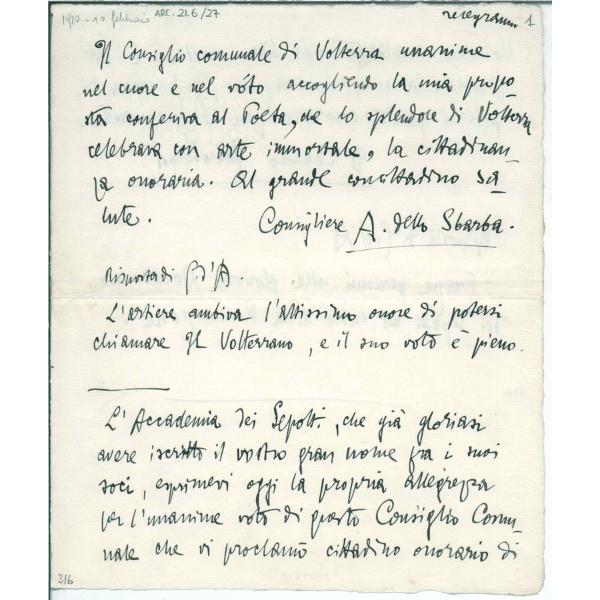 1910 - 10 febbraio ARC. 21.6/27
telegrammi 1
Il Consiglio comunale di Volterra unanime
nel cuore e nel vóto accogliendo la mia propo
sta conferiva al Poeta, che lo splendore di Volterra
celebrava con arte immortale, la cittadinan-
za onoraria. Al grande concittadino sa-
lute.
Consigliere A. dello Sbarba.
Risposta di G. d'A.
L'artiere ambiva l'altissimo onore di potersi
chiamare Il Volterrano, e il suo voto è pieno.
L'Accademia dei Sepolti, che già gloriasi
avere iscritto il vostro gran nome fra i suoi
soci, esprimevi oggi la propria allegrezza
per l'unanime voto di questo Consiglio Comu-
nale che vi proclamò cittadino onorario di
316